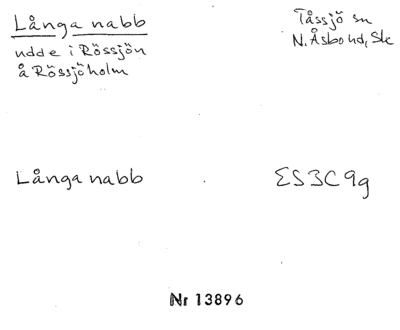 Långa nabb
udde i Rössjön
å Rössjöholm
Tåssjö sn
N. Åsbo hd, Sk
Långa nabb
ES3C9g
Nr 13896